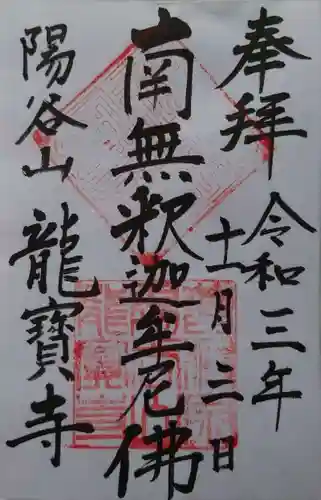 奉拜
令和三年
十一月三日
南無釈迦牟尼佛
陽谷山
龍寶寺